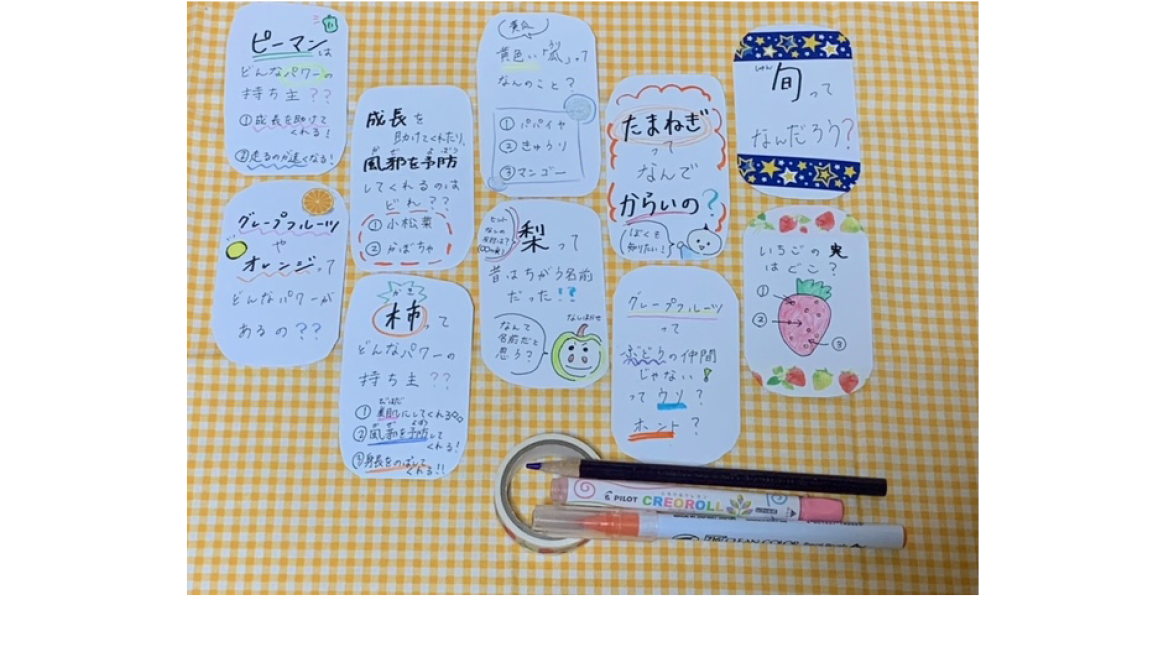 ピーマンは
どんなパワーの
持ち主??
①成長を助けて
くれる!
②走るのが速くなる!
グレープフルーツ
や
オレンジって
どんなパワーが
あるの??
成長を
助けてくれたり、
かぜ よぼう
風邪を予防
してくれるのは
どれ??
①小松菜
②かぼちゃ
かき
柿って
どんなパワーの
持ち主??
①美肌にしてくれる
かぜ よぼう
②風邪を予防して
くれる!
③身長をのばして
くれる!!
うり
黄色い「瓜」って
なんのこと?
①パパイヤ
②きゅうり
③マンゴー
梨って
昔はちがう名前
だった!?
なんて
名前だと
思う?
たまねぎ
って
なんで
からいの?
ぼくも
知りたい!
グレープフルーツ
って
ぶどうの仲間
じゃない!
って ウソ?
ホント?
しゅん
旬って
なんだろう?
いちごの実
はどこ?
①
②
③
PILOT CREOROLL
CLEAN COLOR